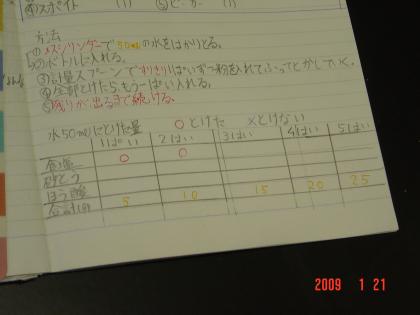 ④スポイト (1) ⑤ビーカー (1)
方法
①メスシリンダーで50mlの水をはかりとる。
のボトルに入れる。
③計量スプーンですりきり1ぱいずつ粉を入れてふってとかしていく。
④全部とけたら、もう一ぱい入れる。
⑤残りが出るまで続ける。
水50mlにとけた量 ○とけた ×とけない
1ぱい 2はい 3ばい 4はい 5はい
食塩 ○ ○
砂とう
ほう酸
合計(g) 5 10 15 20 25
2009 1 21